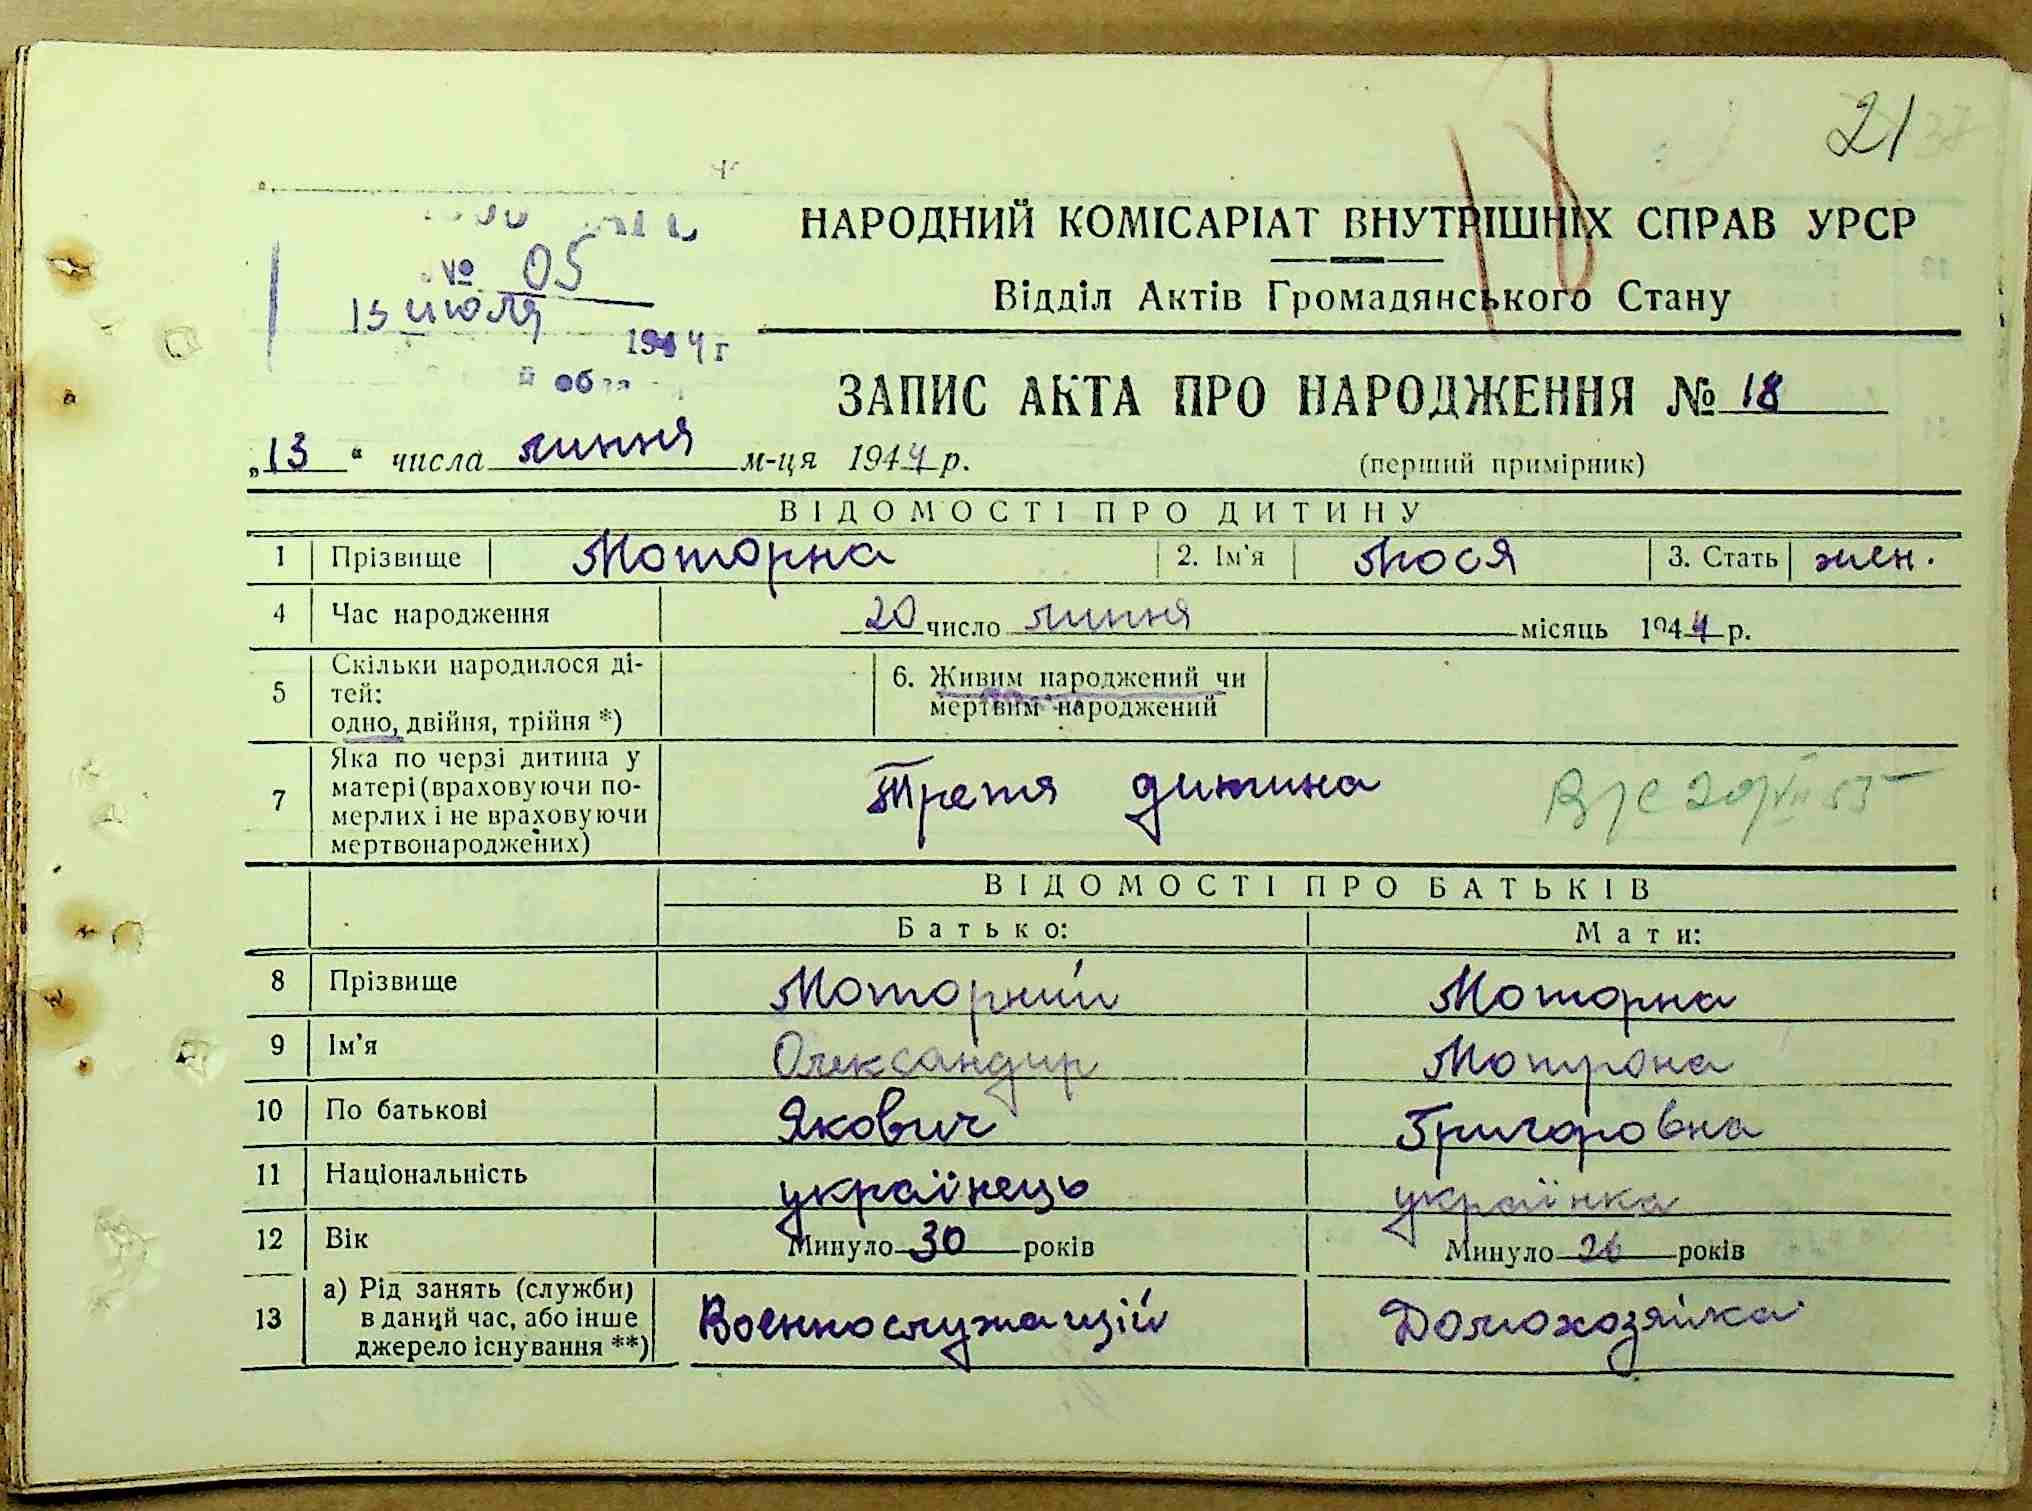 21
НАРОДНИЙ КОМІСАРІАТ ВНУТРІШНІХ СПРАВ УРСР
№ 05
Відділ Актів Громадянського Стану
13 июля
1944 г
ЗАПИС АКТА ПРО НАРОДЖЕННЯ № 18
„13“ числа липня м-ця 1944 р.
(перший примірник)
ВІДОМОСТІ ПРО ДИТИНУ
1 Прізвище Моторна 2. Ім'я Люся 3. Стать жен.
4 Час народження 20 число липня місяць 1944 р.
5 Скільки народилося ді-
тей:
одно, двійня, трійня *)
6. Живим народжений чи
мертвим народжений
7 Яка по черзі дитина у
матері (враховуючи по-
мерлих і не враховуючи
мертвонароджених)
Третя дитина
ВІДОМОСТІ ПРО БАТЬКІВ
Батько: Мати:
8 Прізвище Моторний Моторна
9 Ім'я Олександир Мотрона
10 По батькові Якович Григоровна
11 Національність українець українка
12 Вік Минуло 30 років Минуло 26 років
13 а) Рід занять (служби)
в даний час, або інше
джерело існування **)
Военнослужащій Домохозяйка